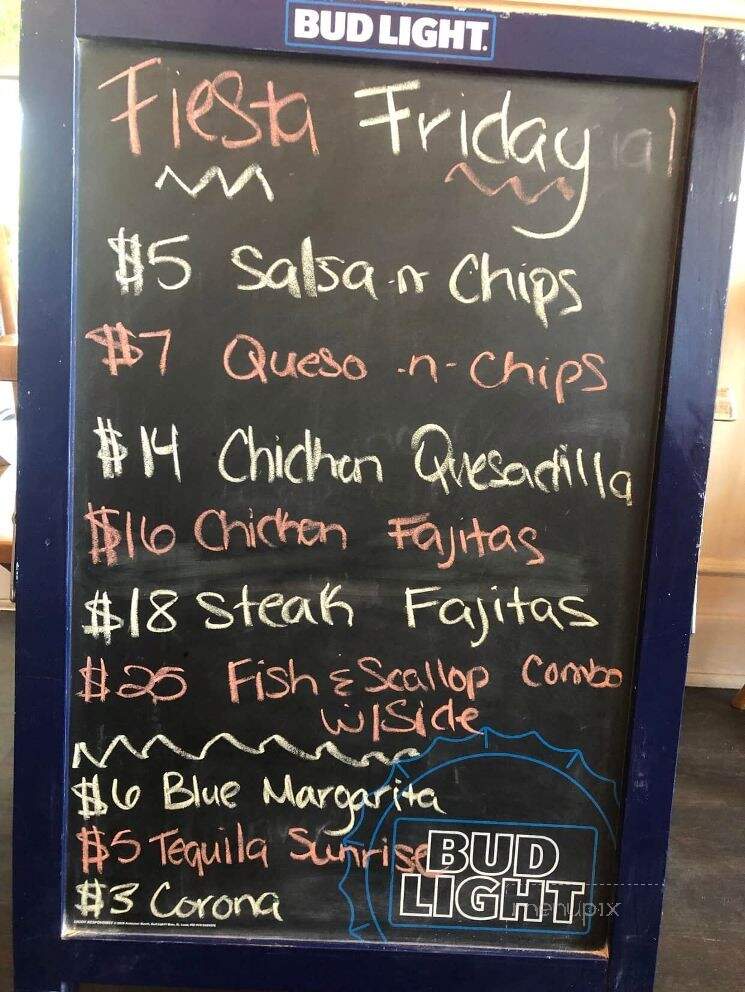 BUD LIGHT.
Fiesta Friday
$5 Salsa n Chips
$7 Queso -n- Chips
$14 Chicken Quesadilla
$16 Chicken Fajitas
$18 Steak Fajitas
$25 Fish & Scallop Combo
w/Side
$6 Blue Margarita
$5 Tequila Sunrise
$3 Corona
BUD
LIGHT
menupix